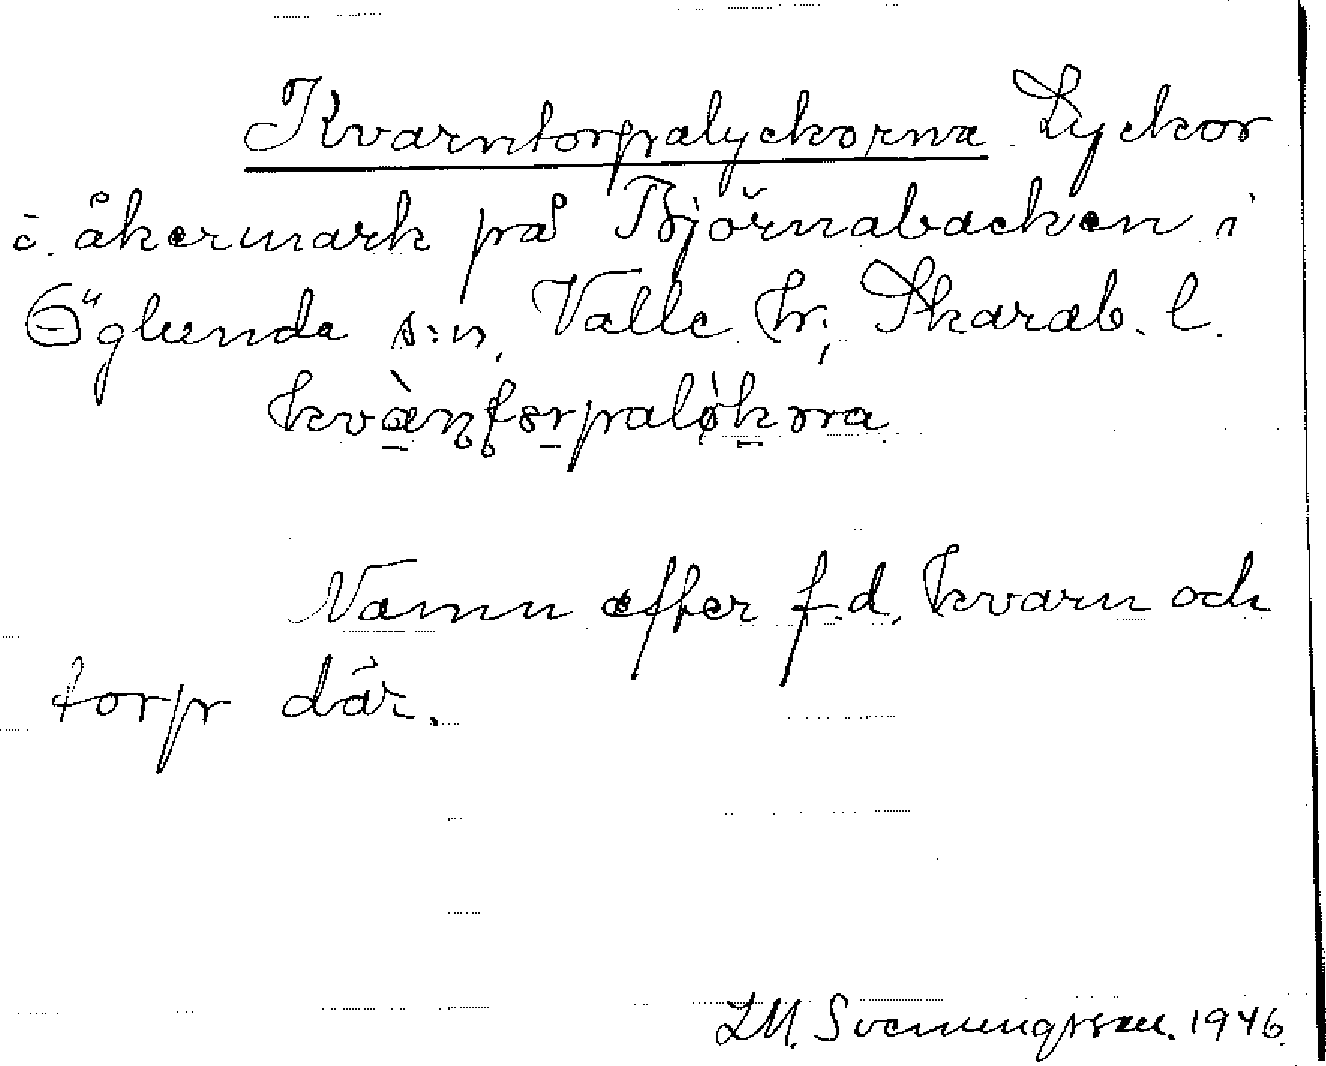 Kvarntorpalyckorna Lyckor
i åkermark på Björnabacken i
Öglunda s:n, Valle hr, Skarab. l.
Namn efter f.d. kvarn och
torp där.
L.M. Svenungsson. 1946.